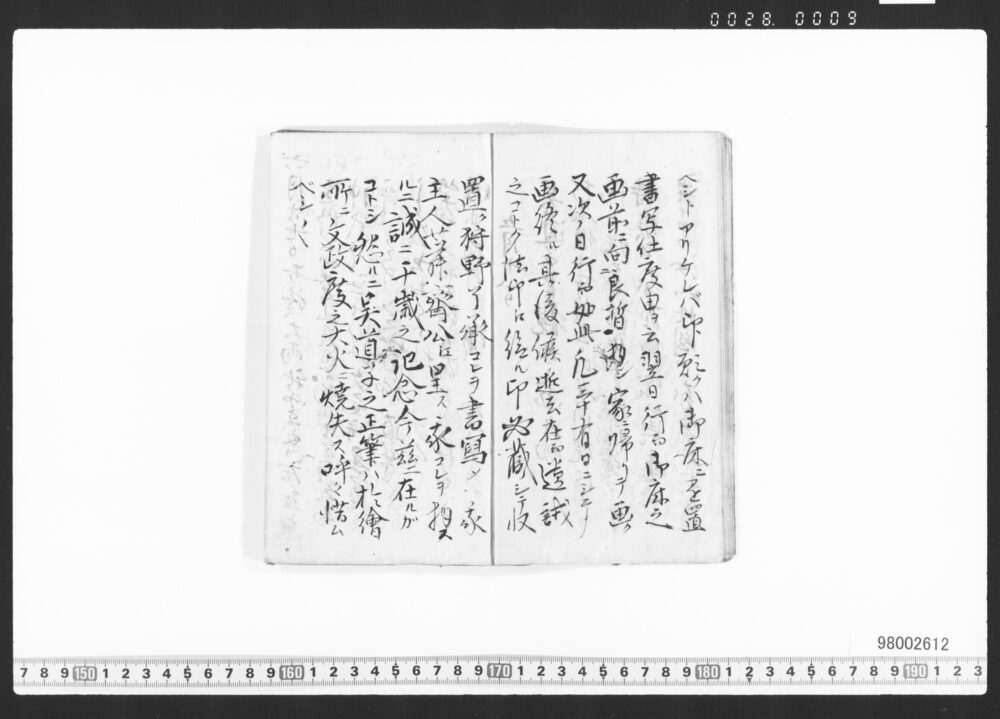 0028. 0009
ベシトアリケレバ即願クハ御床ニ是置
書写仕度由ヲ云翌日行而御床之
画前ニ向良暫拝シ家ニ帰リテ画ク
又次ノ日行而如此凡三十有日ニシテ
画終ル其後候逝去在而遺誡
之コトク法印江給ル印必蔵シテ収
置ク狩野了承コレヲ書写シ家
主人 公江呈ス家コレヲ拝ス
ルニ誠ニ千歳之記念今茲ニ在ルガ
コトシ然ルニ呉道子之正筆ハ於繪
所ニ文政度之大火ニ焼失ス呼々惜ム
ベシ
98002612
7 8 9 150 1 2 3 4 5 6 7 8 9 160 1 2 3 4 5 6 7 8 9 170 1 2 3 4 5 6 7 8 9 180 1 2 3 4 5 6 7 8 9 190 1 2 3